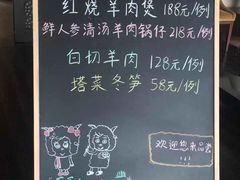 红烧羊肉煲 188元/例
鲜人参清汤羊肉锅仔 218元/例
白切羊肉 128元/例
塔菜冬笋 58元/例
欢迎您来品尝